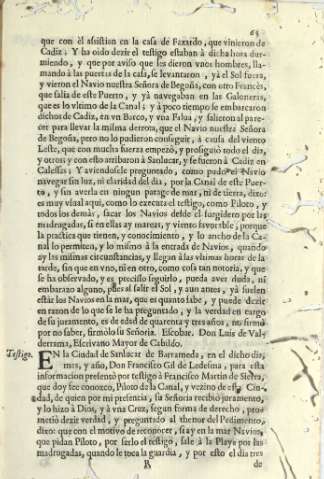 63
que con èl assistian en la casa de Fazardo, que vinieron de
Cadiz. Y ha oido dezir el testigo estaban à dicha hora dur-
miendo, y que por aviso que les dieron unos hombres, lla-
mando à las puertas de la casa, se levantaron, yà el Sol fuera,
y vieron el Navio nuestra Señora de Begoña, con otro Francès,
que salia de este Puerto, y yà navegaban en las Galoneras,
que es lo vltimo de la Canal; y à poco tiempo se embarcaron
dichos de Cadiz, en vn Barco, y vna Falua, y salieron al pare-
cer para llevar la misma derrota, que el Navio nuestra Señora
de Begoña, pero no lo pudieron conseguir, à causa del viento
Leste, que con mucha fuerza empezò, y prosiguiò todo el dia,
y otros; y con esto arribaron à Sanlucar, y se fueron à Cadiz en
Calessas; Y aviendosele preguntado, como pudo el Navio
navegar sin luz, ni claridad del dia, por la Canal de este Puer-
to, y sin averla en ningun parage de mar, ni de tierra, dixo:
es muy vsual aqui, como lo executa el testigo, como Piloto, y
todos los demàs, sacar los Navios desde el surgidero por las
madrugadas, si en ellas ay mareas, y viento favorable, porque
la practica que tienen, y conocimiento, y lo ancho de la Ca-
nal lo permiten, y lo mismo à la entrada de Navios, quando
ay las mismas circunstancias, y llegan à las vltimas horas de la
tarde, sin que en vno, ni en otro, como cosa tan notoria, y que
se ha observado, y es preciso seguirlo, pueda aver duda, ni
embarazo alguno, por al salir el Sol, y aun antes, yà suelen
estàr los Navios en la mar, que es quanto sabe, y puede dezir
en razon de lo que se le ha preguntado, y la verdad en cargo
de su juramento, es de edad de quarenta y tres años, no firmò
por no saber, firmòlo su Señoria. Escobar. Don Luis de Val-
derrama, Escrivano Mayor de Cabildo.
Testigo.
EN la Ciudad de Sanlucar de Barrameda, en el dicho dia,
mes, y año, Don Francisco Gil de Ledesma, para esta
informacion presentò por testigo à Francisco Martin de
que doy fee conozco, Piloto de la Canal, y vezino de esta Ciu-
dad, de quien por mi presencia, su Señoria recibiò juramento,
y lo hizo à Dios, y à vna Cruz, segun forma de derecho, pro-
metiò dezir verdad, y preguntado al thenor del Pedimento,
dixo: que con el motivo de reconocer, si ay en la mar Navios,
que pidan Piloto, por serlo el testigo, sale à la Playa por las
madrugadas, quando le toca la guardia, y por esto el dia tres
R de